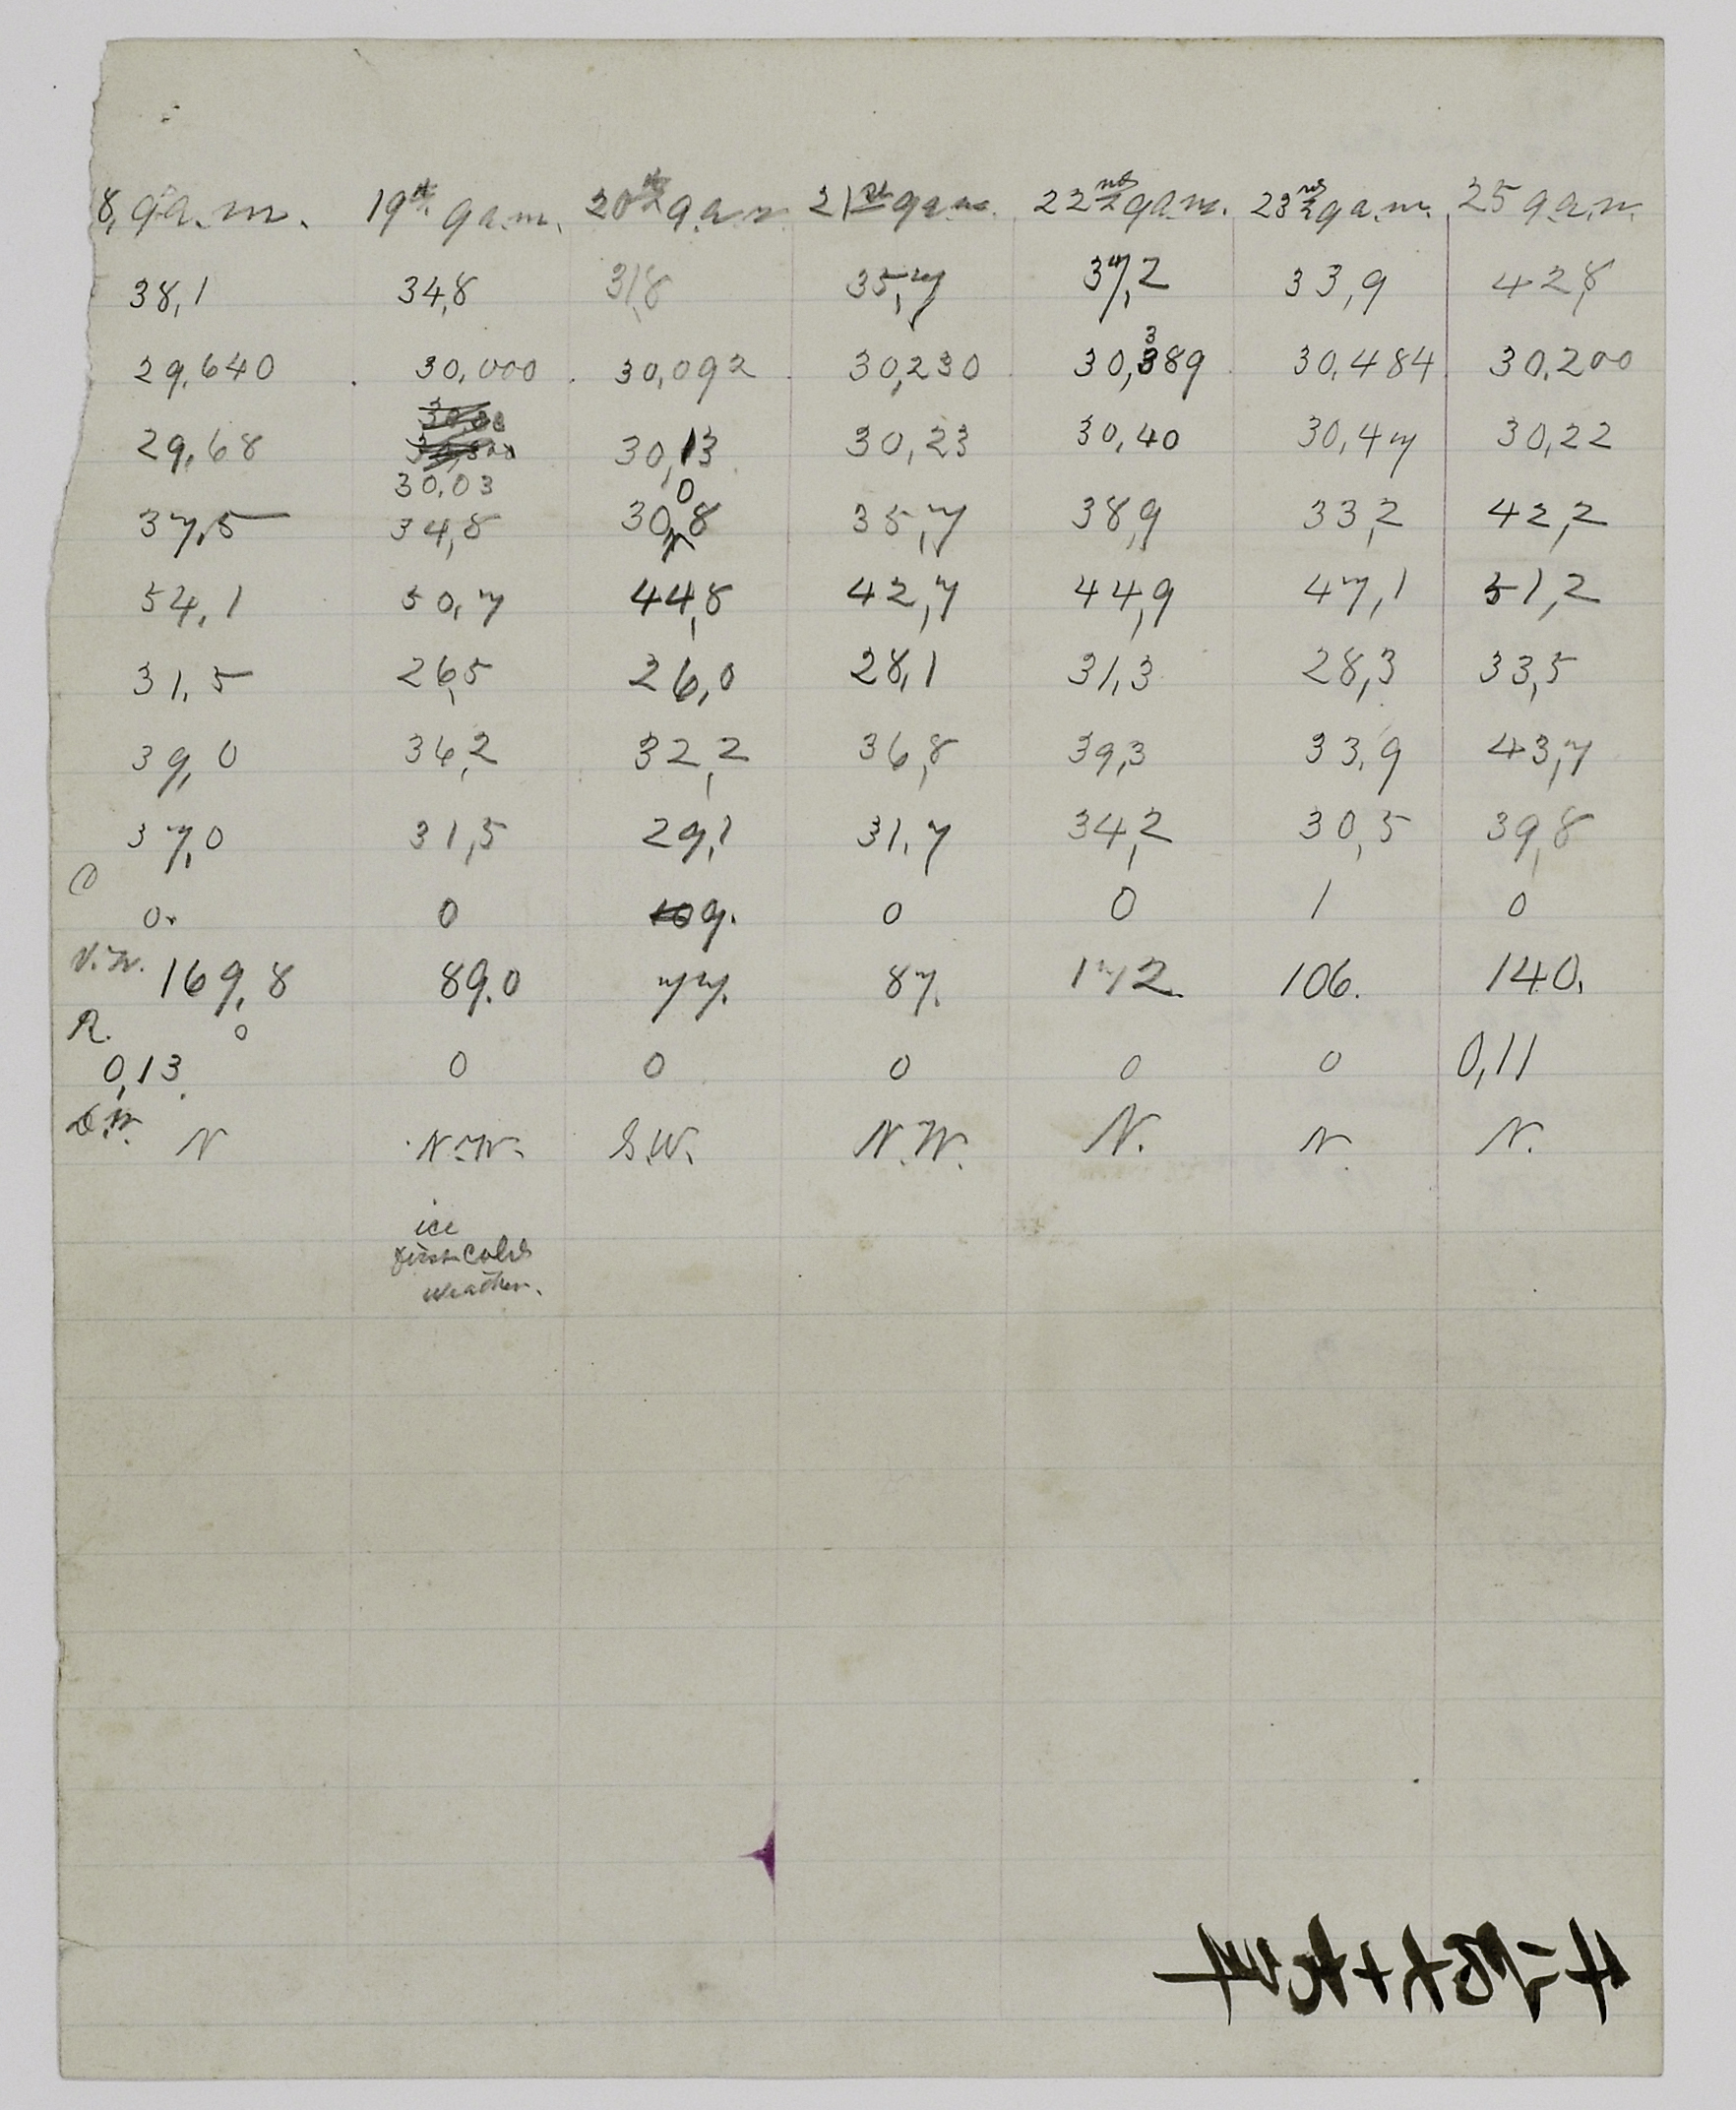 8, 9 a.m. 19th. 9 a.m. 20th 9 a.m 21st 9 a.m. 22nd 9 a.m. 23rd 9 a.m. 25 9 a.m.
38,1 34,8 31,8 35,7 37,2 33,9 42,8
29,640 30,000 30,092 30,230 30,389 30,484 30,200
29,68 30,03 30,13 30,23 30,40 30,47 30,22
37,5 34,8 30,8 35,7 38,9 33,2 42,2
54,1 50,7 44,8 42,7 44,9 47,1 51,2
31,5 26,5 26,0 28,1 31,3 28,3 33,5
39,0 36,2 32,2 36,8 39,3 33,9 43,7
37,0 31,5 29,1 31,7 34,2 30,5 39,8
C
0. 0 9. 0 0 1 0
V.W. 169,8 89.0 77. 87. 172. 106. 140.
R. 0
0,13. 0 0 0 0 0 0,11
D.W. N N.W. S.W. N.W. N. N. N.
ice
first cold
weather.